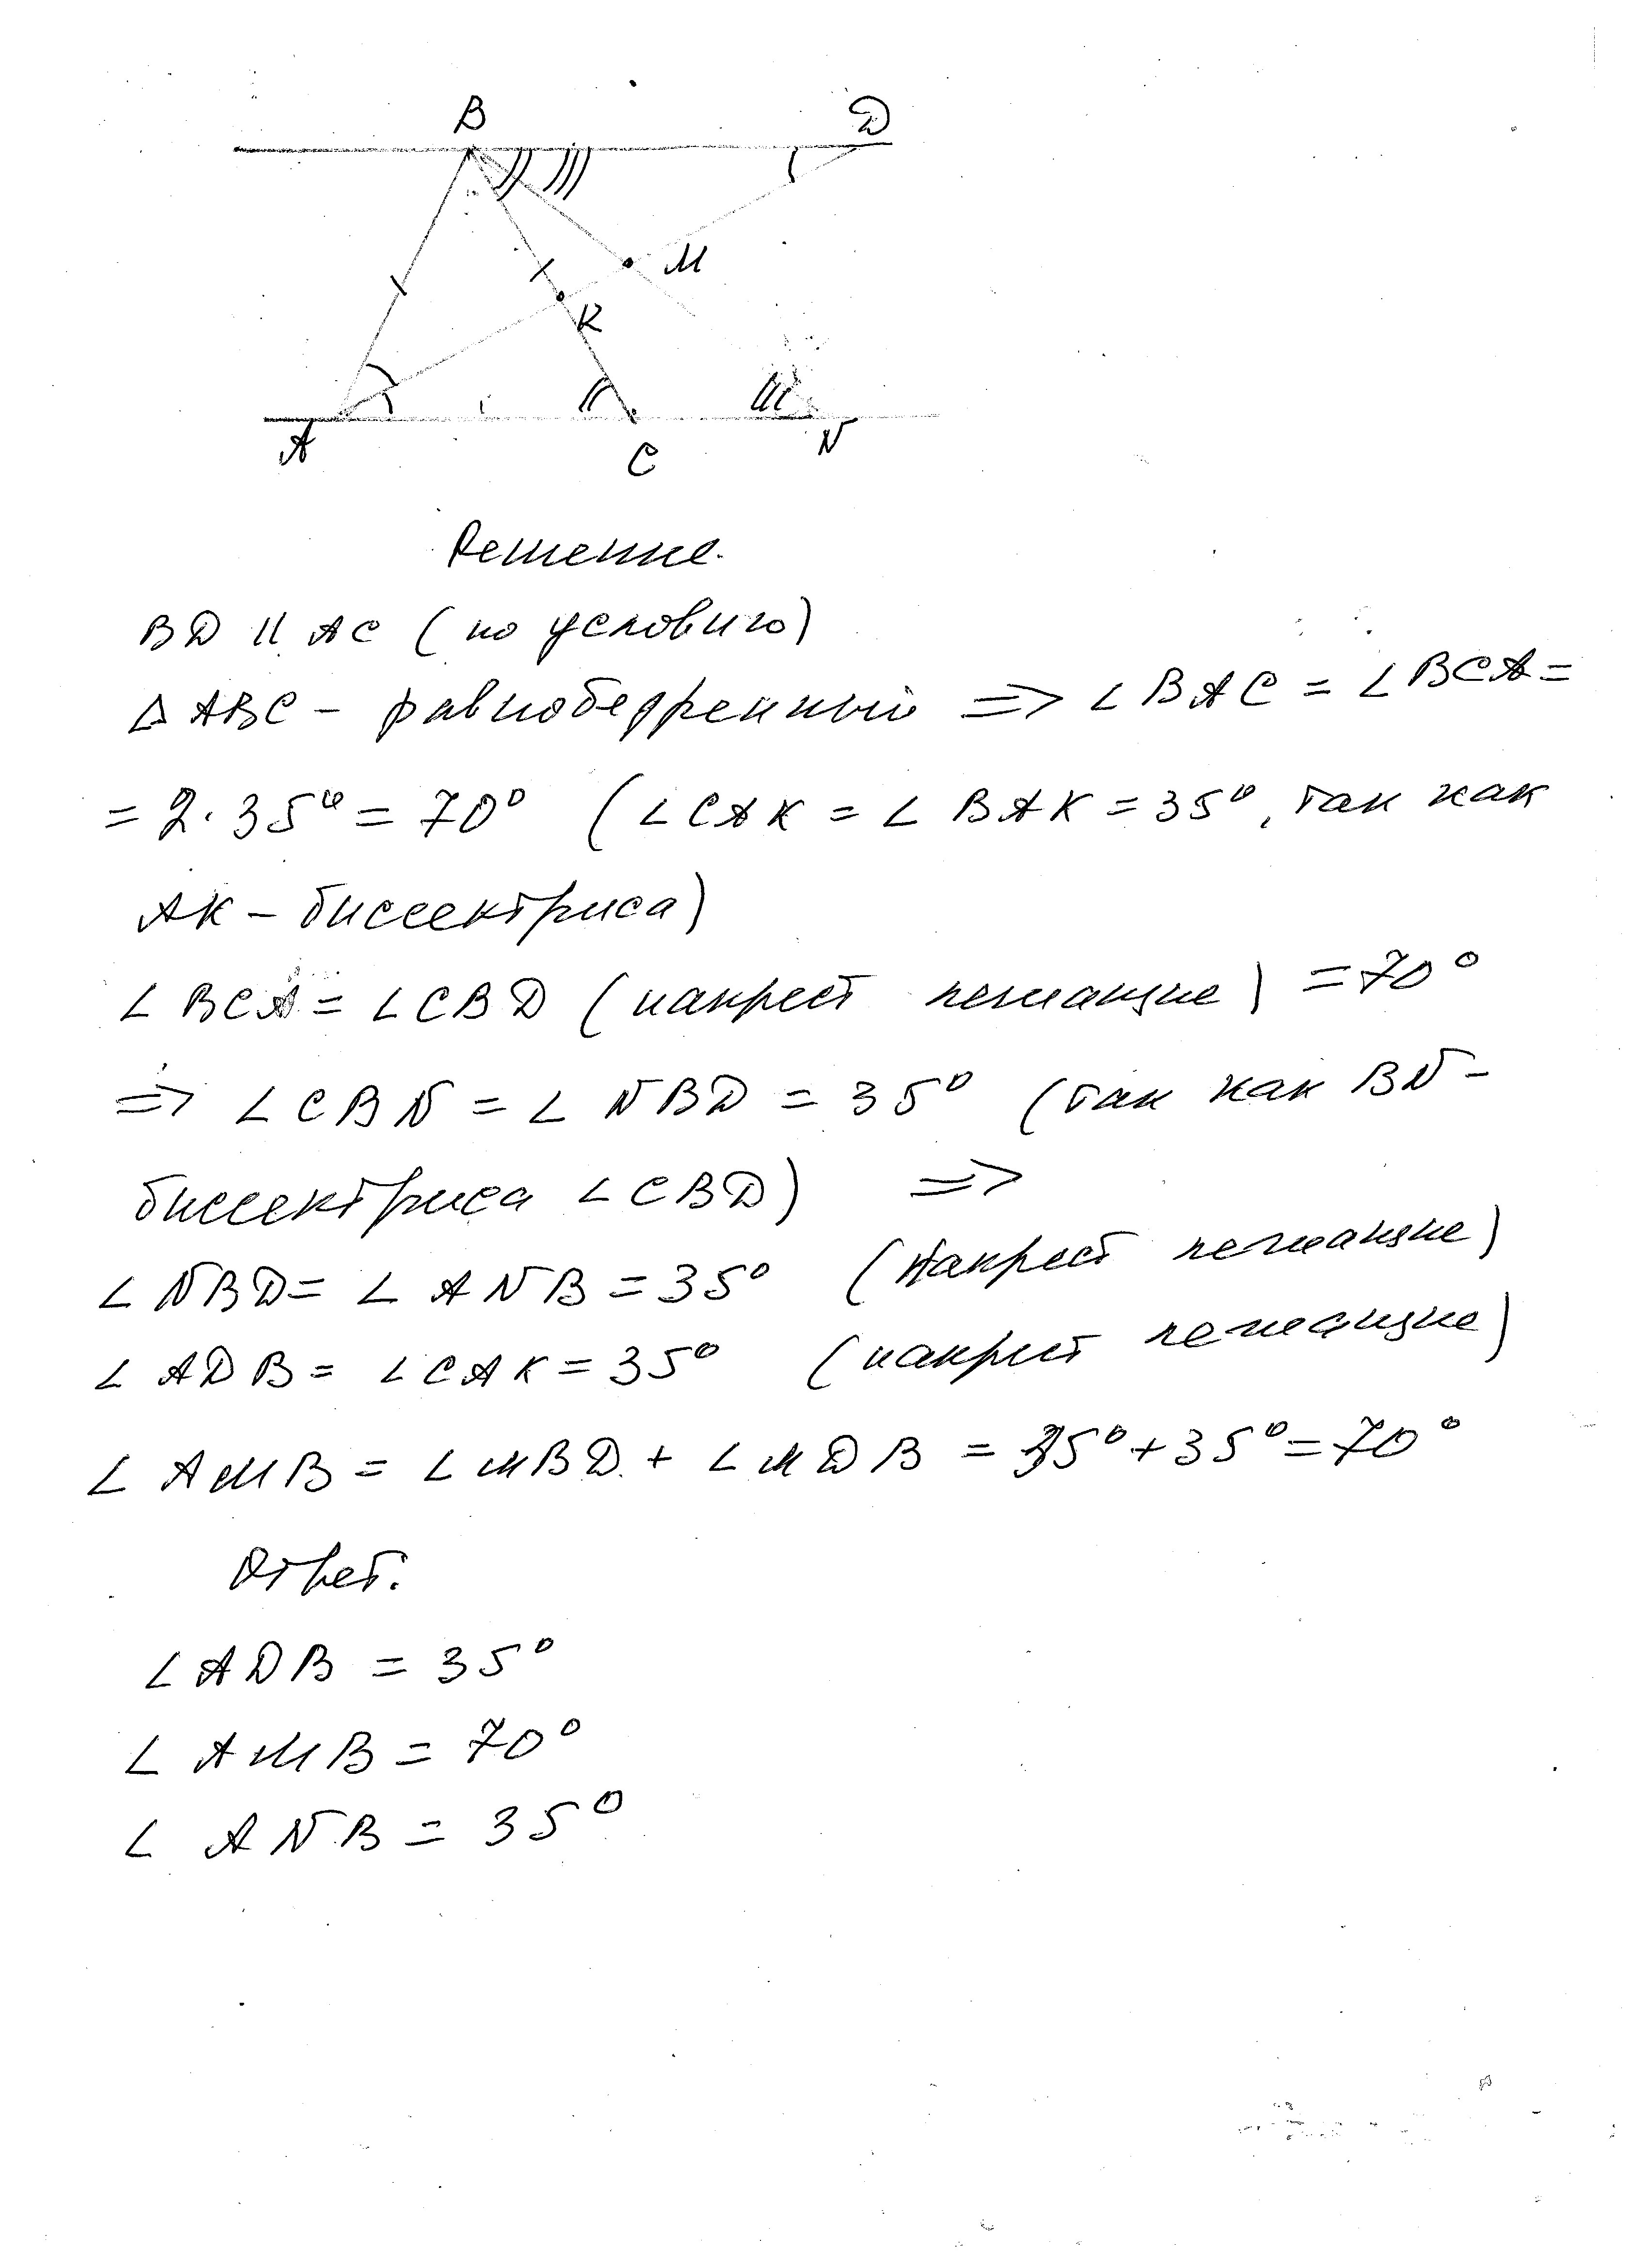 B D
M
K
A C N
Решение.
BD || AC (по условию)
Δ ABC - равнобедренный => ∠BAC = ∠BCA =
= 2·35° = 70° (∠CAK = ∠BAK = 35°, так как
AK - биссектриса)
∠BCA = ∠CBD (накрест лежащие) = 70°
=> ∠CBN = ∠NBD = 35° (так как BN -
биссектриса ∠CBD) =>
∠NBD = ∠ANB = 35° (накрест лежащие)
∠ADB = ∠CAK = 35° (накрест лежащие)
∠AMB = ∠MBD + ∠MDB = 35° + 35° = 70°
Ответ.
∠ADB = 35°
∠AMB = 70°
∠ANB = 35°